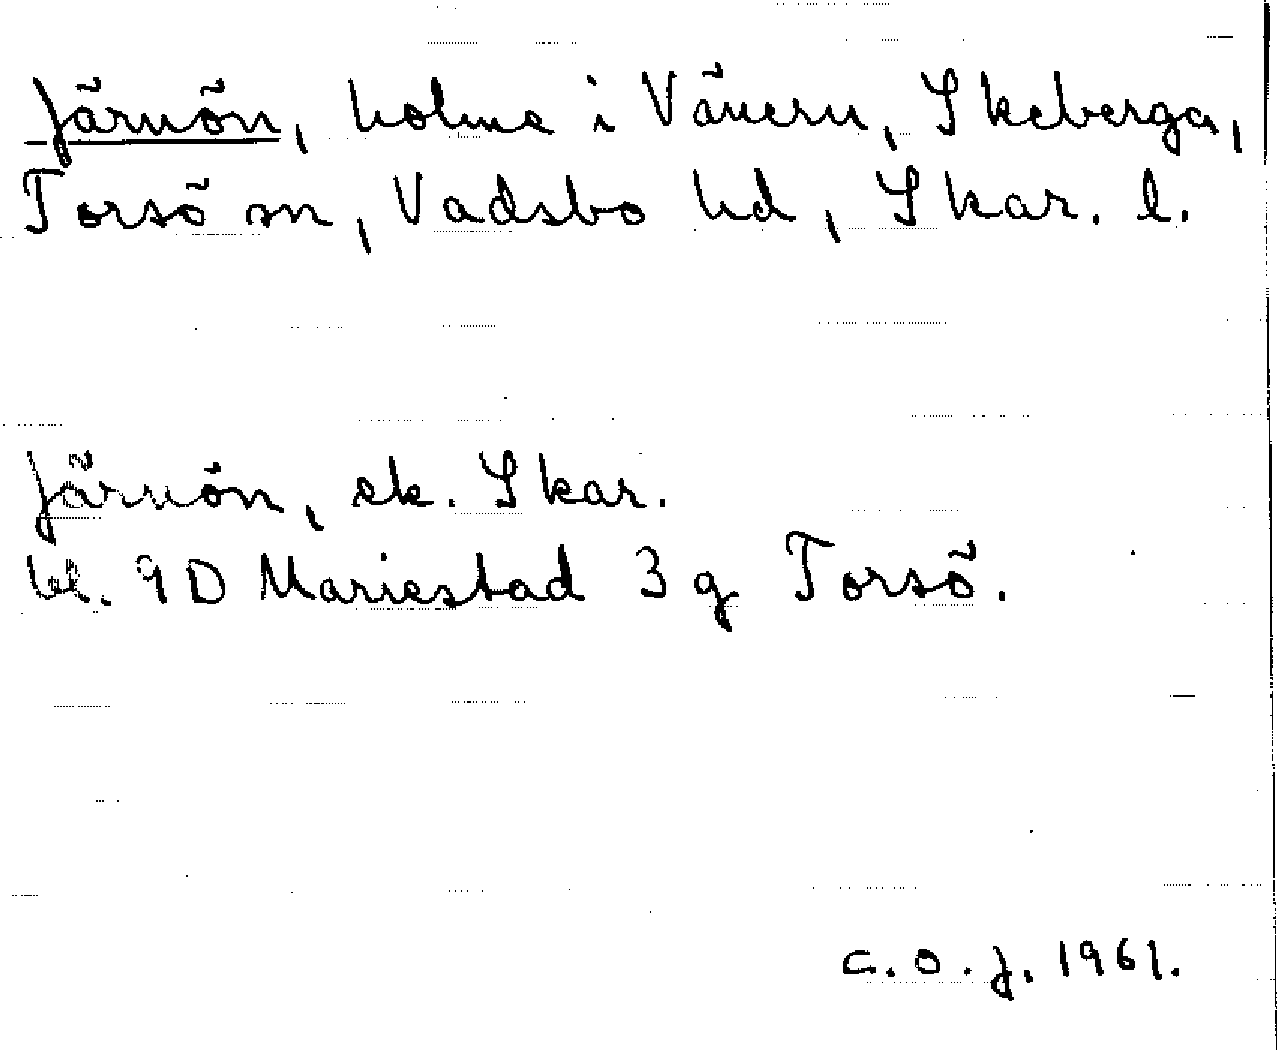 Järnön, holme i Vänern, Skeberga,
Torsö sn, Vadsbo hd, Skar. l.
Järnön, ek. Skar.
bl. 9D Mariestad 3 g Torsö.
C.O.J. 1961.